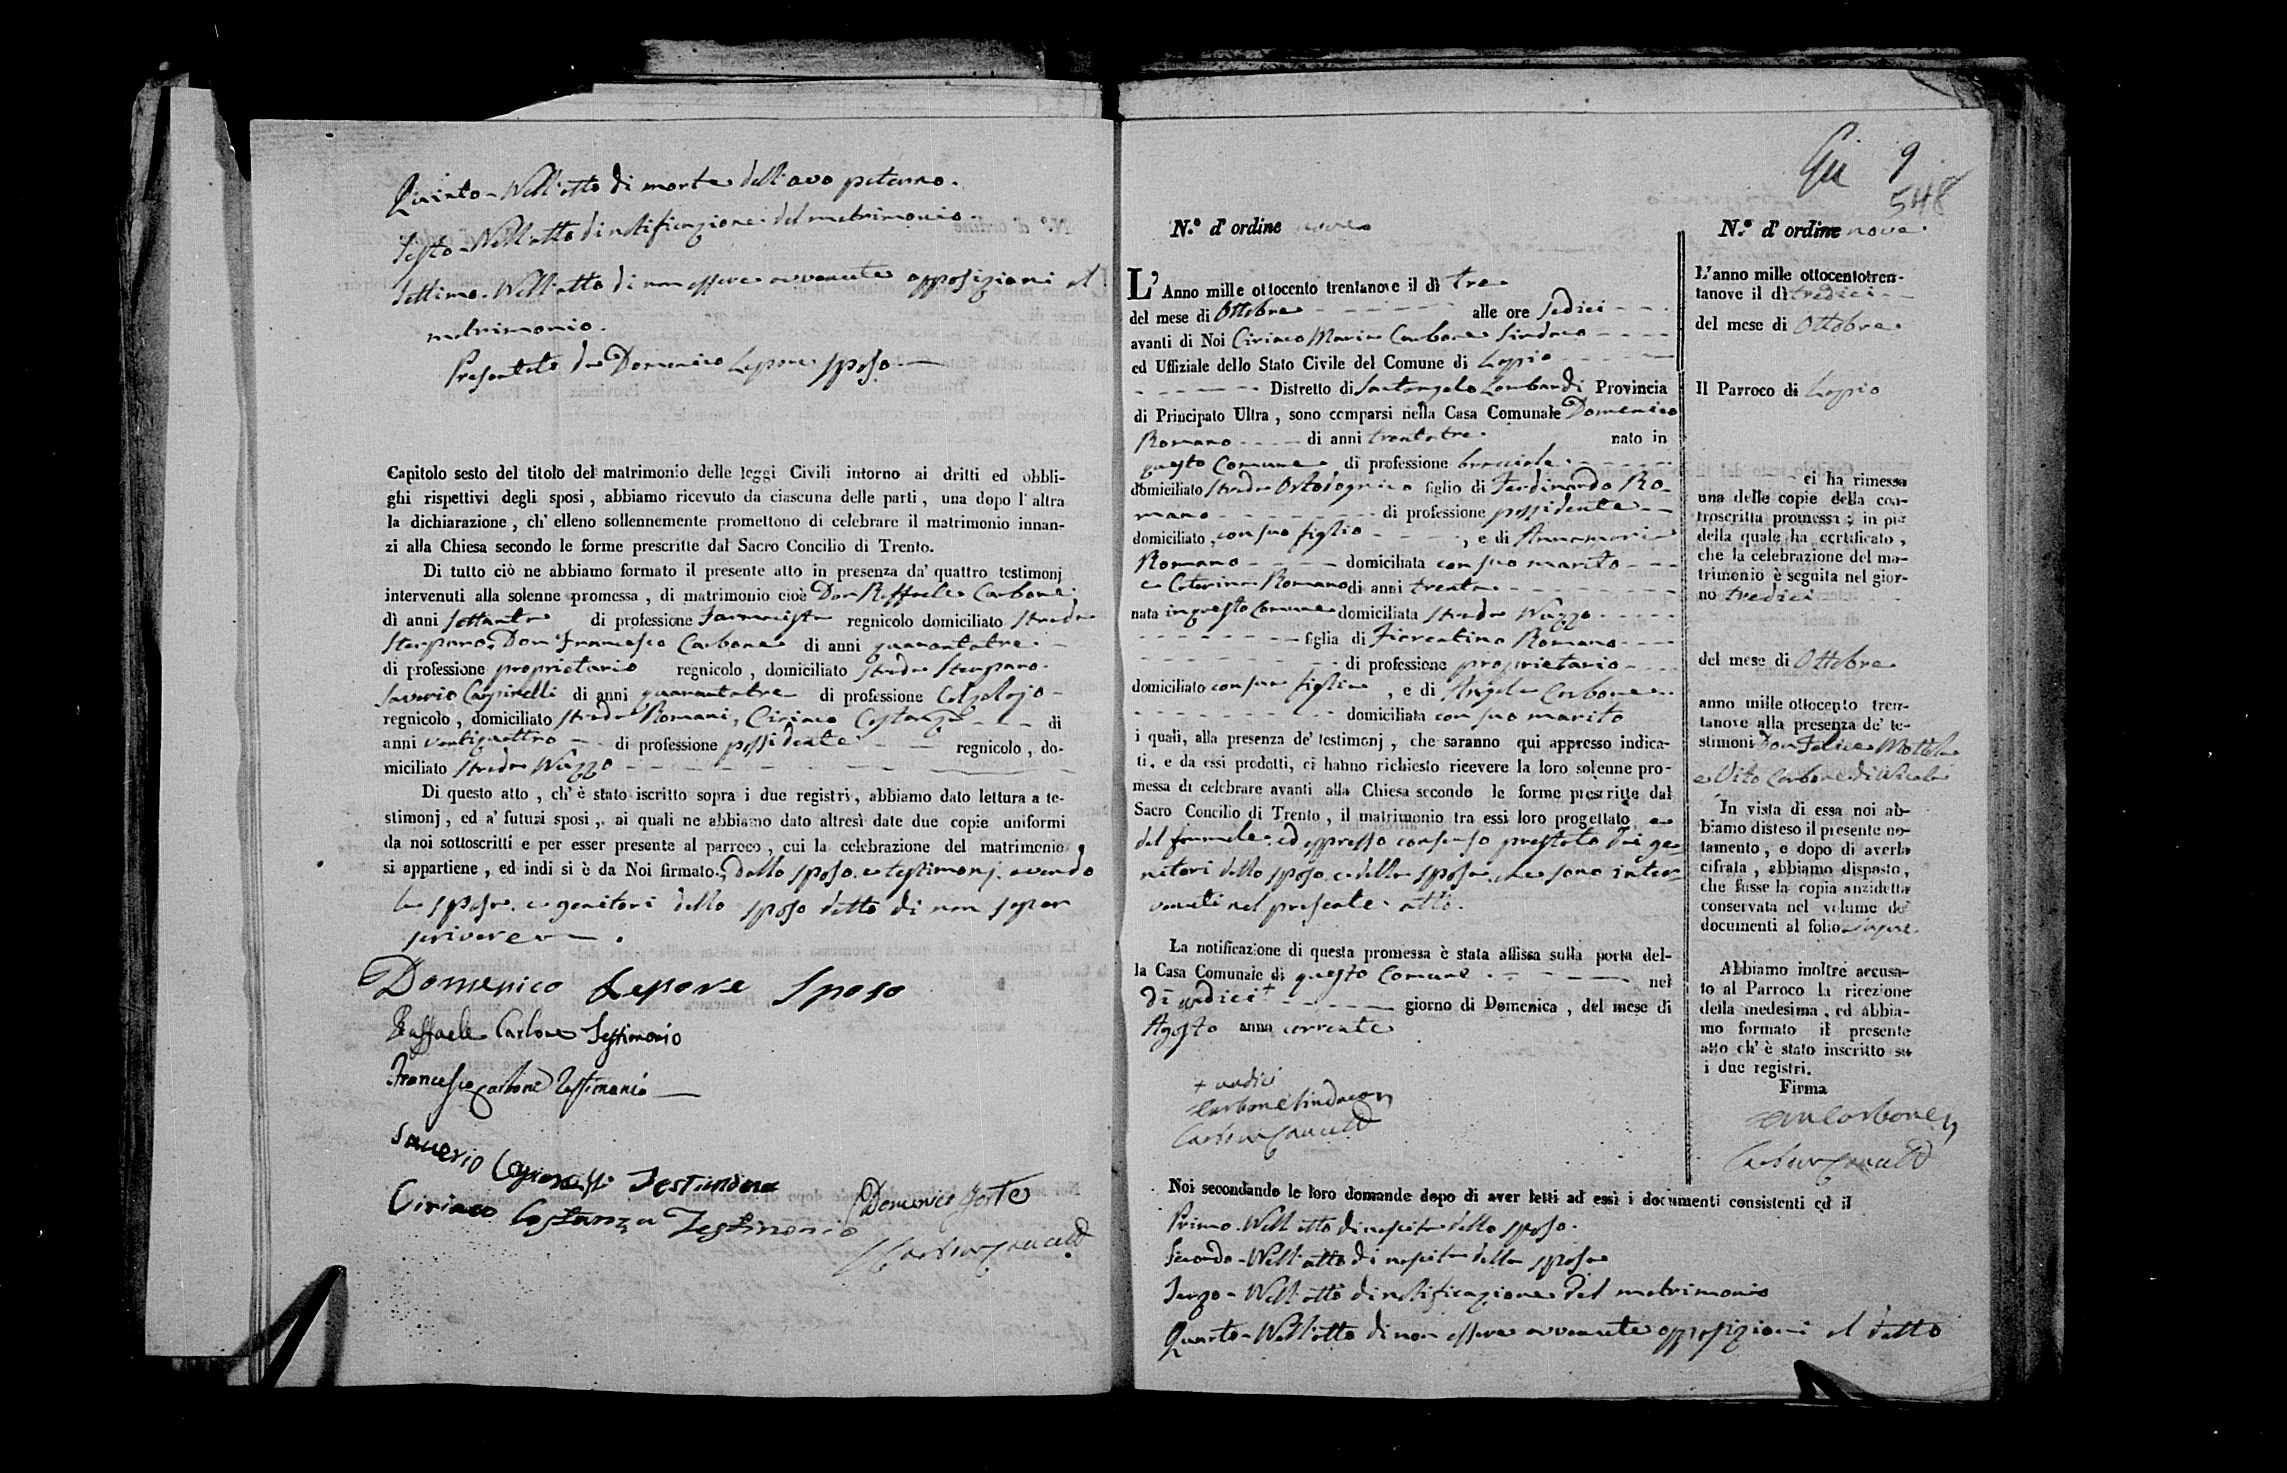 Quinto - Nell'atto di morte dell'avo paterno.
Sesto - Nell'atto di notificazione del matrimonio.
Settimo - Nell'atto di non essere avvenute opposizioni al
matrimonio.
Presentate da Domenico Lepore sposo.
Capitolo sesto del titolo del matrimonio delle leggi Civili intorno ai dritti ed obbli-
ghi rispettivi degli sposi, abbiamo ricevuto da ciascuna delle parti, una dopo l'altra
la dichiarazione, ch'elleno sollennemente promettono di celebrare il matrimonio innan-
zi alla Chiesa secondo le forme prescritte dal Sacro Concilio di Trento.
Di tutto ciò ne abbiamo formato il presente atto in presenza da' quattro testimonj
intervenuti alla solenne promessa, di matrimonio cioè Don Raffaele Carbone
di anni settanta di professione Farmacista regnicolo domiciliato strada
Sterparo, Don Francesco Carbone di anni quarantatre
di professione proprietario regnicolo, domiciliato strada Sterparo
Saverio Capirelli di anni quarantatre di professione Calzolajo
regnicolo, domiciliato strada Romani, Ciriaco Costanza di
anni ventiquattro di professione possidente regnicolo, do-
miciliato strada Wuzzo
Di questo atto, ch'è stato iscritto sopra i due registri, abbiamo dato lettura a te-
stimonj, ed a' futuri sposi, ai quali ne abbiamo dato altresì date due copie uniformi
da noi sottoscritti e per esser presente al parroco, cui la celebrazione del matrimonio
si appartiene, ed indi si è da Noi firmato, dallo sposo e testimonj avendo
la sposa e genitori dello sposo detto di non saper
scrivere.
Domenico Lepore Sposo
Raffaele Carbone Testimonio
Francesco Carbone Testimonio
Saverio Testimone
Ciriaco Costanza Testimonio
Domenico Forte
9
548
N.º d'ordine nove
L'Anno mille ottocento trentanove il dì tre
del mese di Ottobre alle ore sedici
avanti di Noi Ciriaco Maria Carbone Sindaco
ed Uffiziale dello Stato Civile del Comune di Luogio
Distretto di Santangelo Lombardi Provincia
di Principato Ultra, sono comparsi nella Casa Comunale Domenico
Romano di anni trentatre nato in
questo Comune di professione bracciale
domiciliato strada Ortolagnica figlio di Ferdinando Ro-
mano di professione possidente
domiciliato, con suo figlio, e di Annamaria
Romano domiciliata con suo marito
e Caterina Romano di anni trenta
nata in questo Comune domiciliata strada Wuzzo
figlia di Fiorentino Romano
di professione proprietario
domiciliato con sua figlia, e di Angela Carbone
domiciliata con suo marito
i quali, alla presenza de' testimonj, che saranno qui appresso indica-
ti, e da essi prodotti, ci hanno richiesto ricevere la loro solenne pro-
messa di celebrare avanti alla Chiesa secondo le forme prescritte dal
Sacro Concilio di Trento, il matrimonio tra essi loro progettato, e
del formale, ed espresso consenso prestato dai ge-
nitori dello sposo, e della sposa, che sono inter-
venuti nel presente atto.
La notificazione di questa promessa è stata affissa sulla porta del-
la Casa Comunale di questo Comune nel
dì undici + giorno di Domenica, del mese di
Agosto anno corrente
+ undici
Carbone Sindaco
N.º d'ordine nove
L'anno mille ottocentotren-
tanove il dì tredici
del mese di Ottobre
Il Parroco di Luogio
ci ha rimessa
una delle copie della con-
troscritta promessa; in piè
della quale ha certificato,
che la celebrazione del ma-
trimonio è seguita nel gior-
no tredici
del mese di Ottobre
anno mille ottocento tren-
tanove alla presenza de' te-
stimoni Don Felice Mottola
e Vito Carbone di Nicola
In vista di essa noi ab-
biamo disteso il presente no-
tamento, e dopo di averla
cifrata, abbiamo disposto,
che fosse la copia anzidetta
conservata nel volume de'
documenti al folio
Abbiamo inoltre accusa-
to al Parroco la ricezione
della medesima, ed abbia-
mo formato il presente
atto ch'è stato inscritto su
i due registri.
Firma
Carbone
Noi secondando le loro domande dopo di aver letti ad essi i documenti consistenti ed il
Primo - Nell'atto di nascita dello sposo.
Secondo - Nell'atto di nascita della sposa
Terzo - Nell'atto di notificazione del matrimonio
Quarto - Nell'atto di non essere avvenute opposizioni al detto